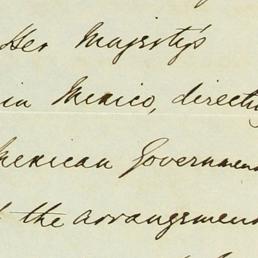 Her Majesty's
in Mexico, directing
Mexican Government
the arrangement